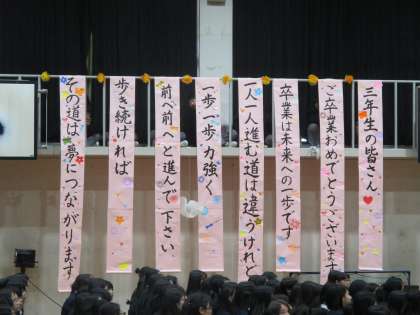 三年生の皆さん
ご卒業おめでとうございます
卒業は未来への一歩です
一人一人進む道は違うけれど
一歩一歩力強く
前へ前へと進んで下さい
歩き続ければ
その道は夢につながります